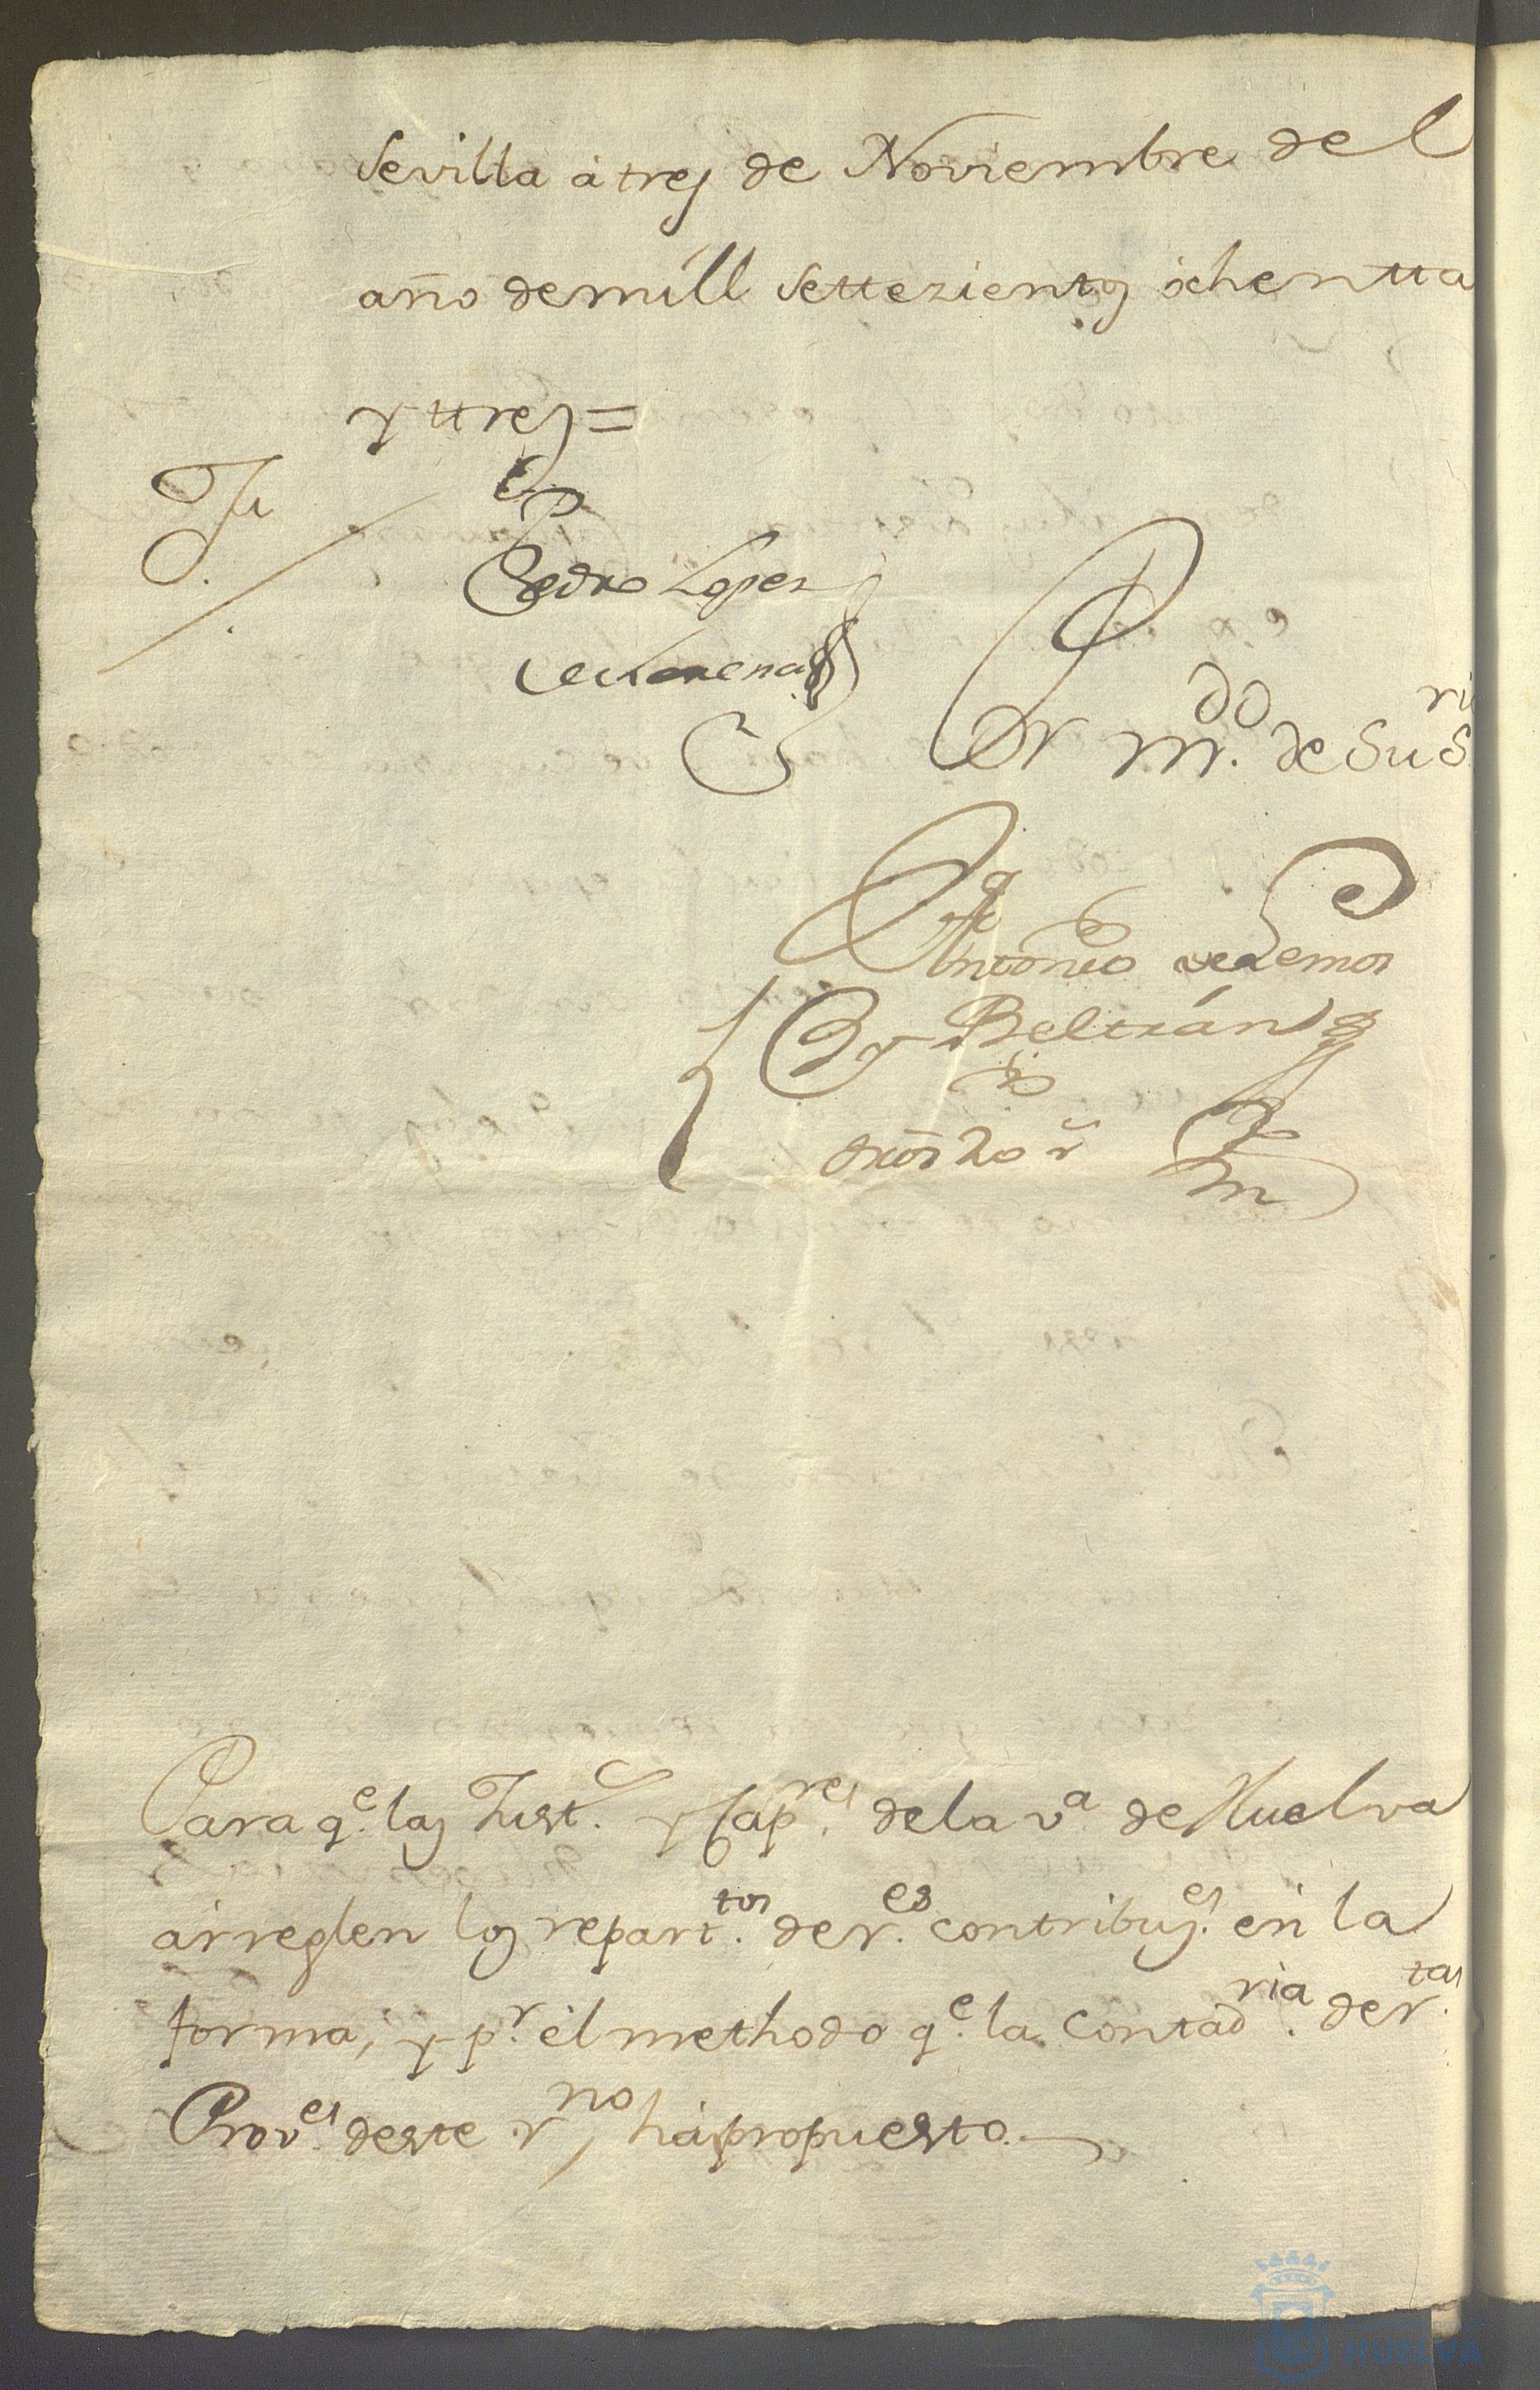 Sevilla à tres de Noviembre del
año de mill settezientos ochentta
y ttres =
Dn Pedro Lopez
de Lerena
Pr mdo. de Su Sria
Antonio de Lemos
y Beltrán
Para qe. las Just.s y Capres. de la va. de Huelva
arreglen los repartttos. de rs. contribuys. en la
forma, y pr. el methodo qe. la Contadria. de rtas.
Proves. deste rno, ha propuesto.
HUELVA